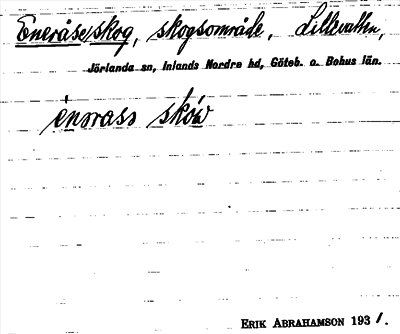 Eneråse skog, skogsområde, Lillvallen,
Jörlanda sn, Inlands Nordre hd, Göteb. o. Bohus län.
sków
ERIK ABRAHAMSON 1931.